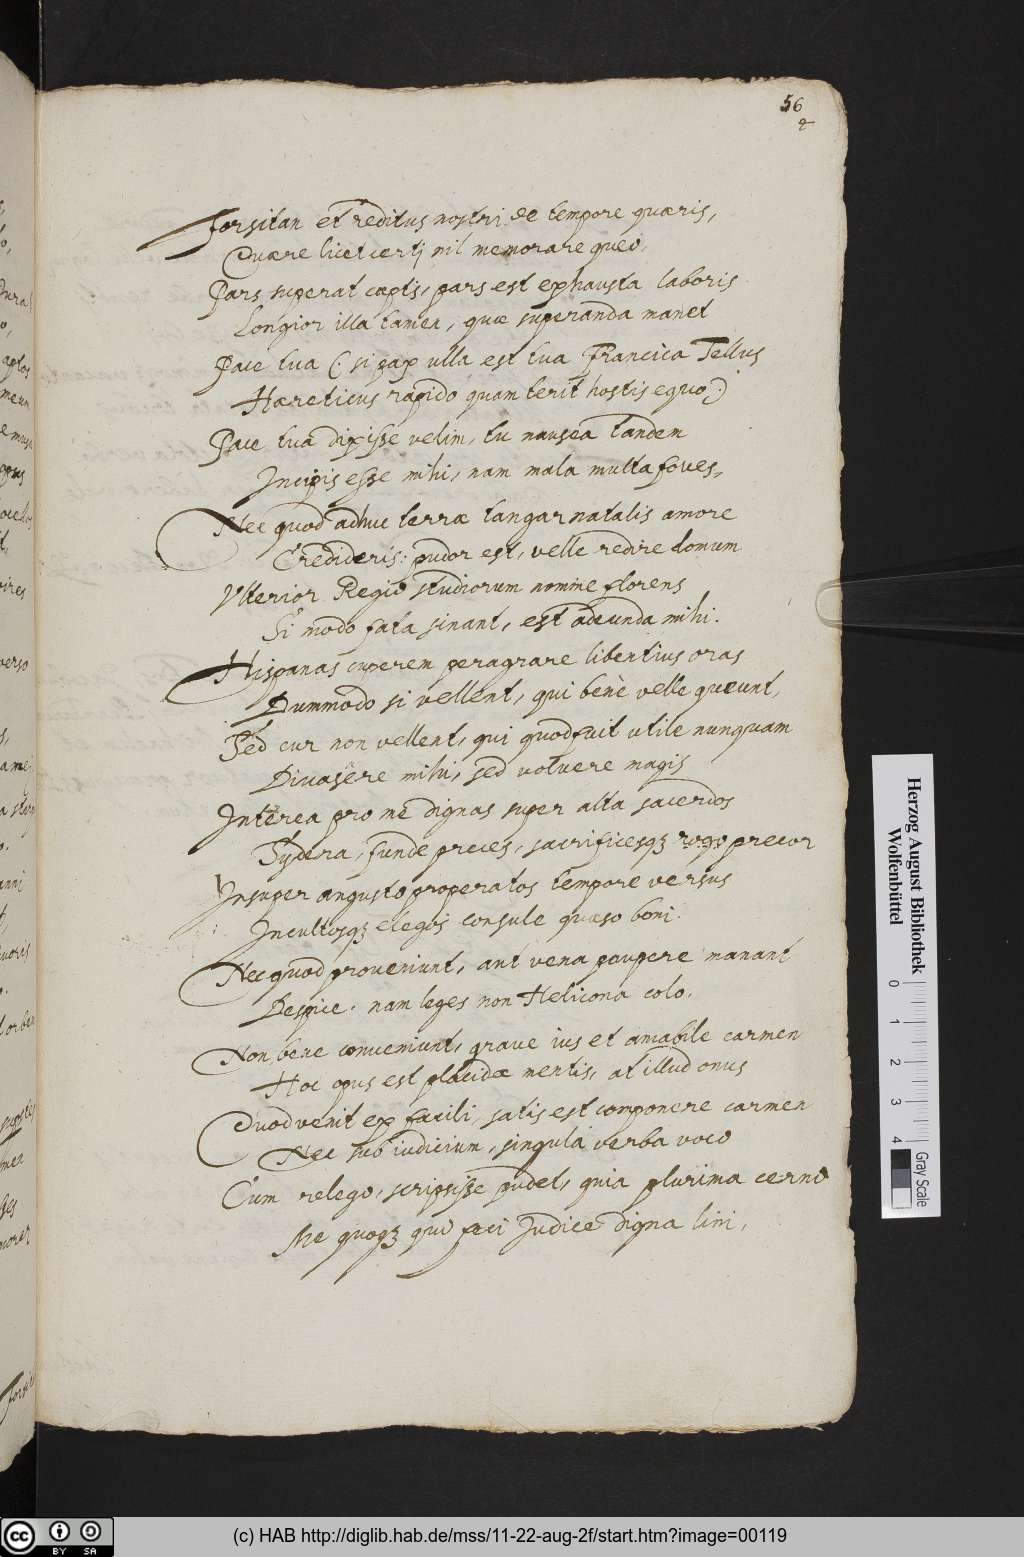 56
4
Forsitan et reditus nostri de tempore quæris,
Quære licet certj nil memorare queo.
Pars superat cæptis, pars est exhausta laboris
Longior illa tamen, quæ superanda manet
Pace tua (: si pax ulla est tua Francica Tellus
Hæreticus rapido quam terit hostis equo :)
Pace tua dixisse velim, tu nausea tandem
Incipis esse mihi, nam mala multa foves.
Nec quod adhuc terræ tangar natalis amore
Credideris: pudor est, velle redire domum
Vlterior Regio studiorum nomine florens
Si modo fata sinant, est adeunda mihi.
Hispanas cuperem peragrare libentius oras
Dummodo si vellent, qui benè velle queunt,
Sed cur non vellent, qui quod fuit utile nunquam
Divasêre mihi, sed voluere magis
Interea pro me dignas super alta sacerdos
Sydera, funde preces, sacrificesqȝ rogo precor
Insuper angusto properatos tempore versus
Incultosqȝ elegos consule quæso boni.
Nec quod proveniunt, aut vena paupere manant
Despice. nam leges non Helicona colo.
Non bene conveniunt, grave ius et amabile carmen
Hoc opus est placidæ mentis, at illud onus
Quod venit ex facili, satis est componere carmen
Nec sub iudicium, singula verba voco
Cum relego, scripsisse pudet, quia plurima cerno
Me quoqȝ qui feci Judice digna lini,
Herzog August Bibliothek
Wolfenbüttel
0 1 2 3 4
Gray Scale
cc BY SA
(c) HAB http://diglib.hab.de/mss/11-22-aug-2f/start.htm?image=00119